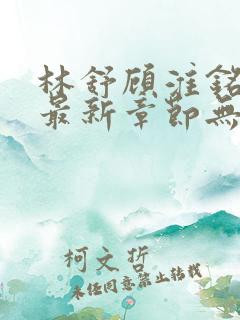 林舒顾淮銘
最新章節無
柯文哲
未经同意禁止转载